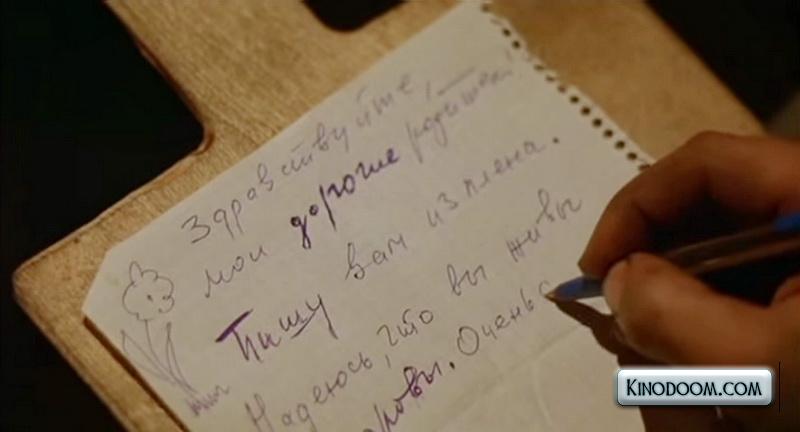 Здравствуйте,
мои дорогие родители!
Пишу вам из плена.
Надеюсь, что вы живы
Очень
KINODOOM.COM